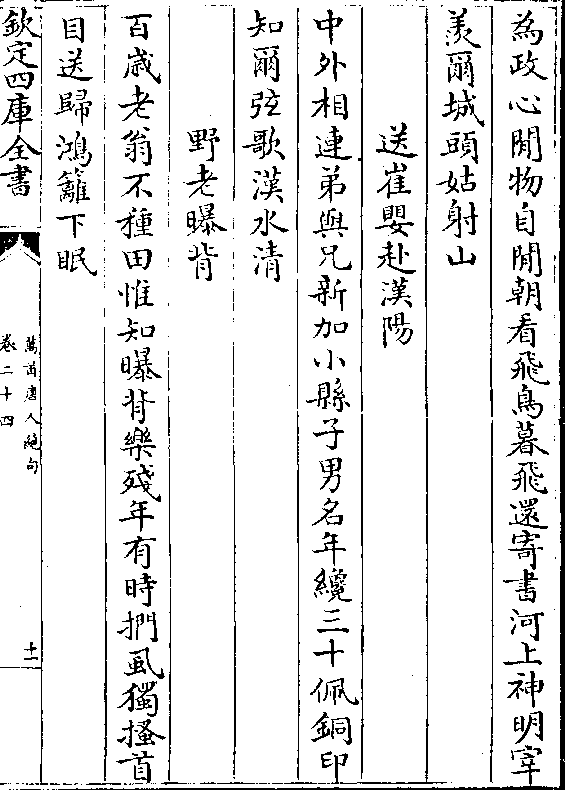 為政心閒物自閒朝看飛鳥暮飛還寄書河上神明宰
羨爾城頭姑射山
送崔嬰赴漢陽
中外相連弟與兄新加小縣子男名年纔三十佩銅印
知爾弦歌漢水清
野老曝背
百歲老翁不種田惟知曝背樂殘年有時捫虱獨搔首
目送歸鴻籬下眠
欽定四庫全書
萬首唐人絶句
卷二十四
十一